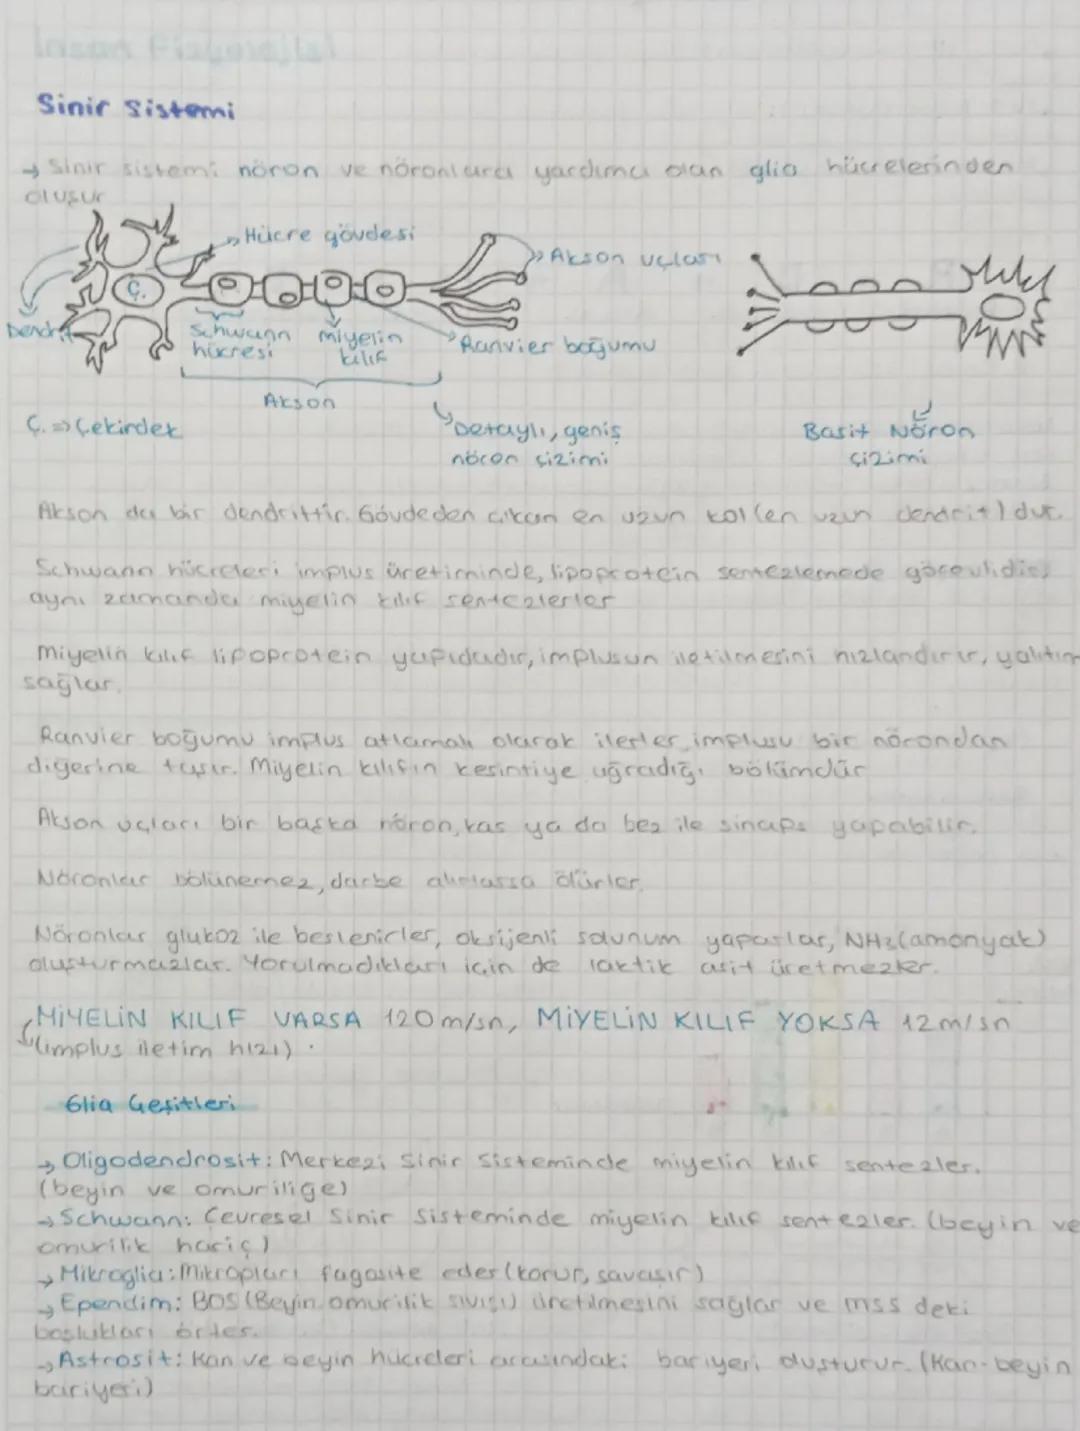 İnsan Fizyolojisi
Sinir Sistemi
→ Sinir sistemi nöron ve nöronlara yardımcı olan glia hücrelerinden
oluşur
Hücre gövdesi
Akson uçları
Ç.
Dendrit
Schwann
hücresi
miyelin
kılıf
Ranvier boğumu
Akson
Ç. => Çekirdek
Detaylı, geniş
nöron çizimi
Basit Nöron
çizimi
Akson da bir dendrittir. Gövdeden çıkan en uzun kol (en uzun dendrit) dur.
Schwann hücreleri implus üretiminde, lipoprotein sentezlemede görevlidir,
aynı zamanda miyelin kılıf sentezlerler
Miyelin kılıf lipoprotein yapıdadır, implusun iletilmesini hızlandırır, yalıtım
sağlar.
Ranvier boğumu implus atlamalı olarak ilerler, implusu bir nörondan
diğerine taşır. Miyelin kılıfın kesintiye uğradığı bölümdür
Akson uçları bir başka nöron, kas ya da bez ile sinaps yapabilir.
Nöronlar bölünemez, darbe alırlarsa ölürler.
Nöronlar glukoz ile beslenirler, oksijenli solunum yaparlar, NH2(amonyak)
oluşturmazlar. Yorulmadıkları için de laktik asit üretmezler.
MİYELİN KILIF VARSA 120 m/sn, MİYELİN KILIF YOKSA 12 m/sn
(implus iletim hızı) .
Glia Çeşitleri
→ Oligodendrosit: Merkezi Sinir Sisteminde miyelin kılıf sentezler.
(beyin ve omuriliğe)
→ Schwann: Çevresel Sinir Sisteminde miyelin kılıf sentezler. (beyin ve
omurilik hariç)
→ Mikroglia: Mikropları fagosite eder (korur, savaşır)
→ Ependim: BOS (Beyin omurilik sıvısı) üretilmesini sağlar ve mss deki
boşlukları örter.
→ Astrosit: Kan ve beyin hücreleri arasındaki bariyeri oluşturur. (Kan-beyin
bariyeri)